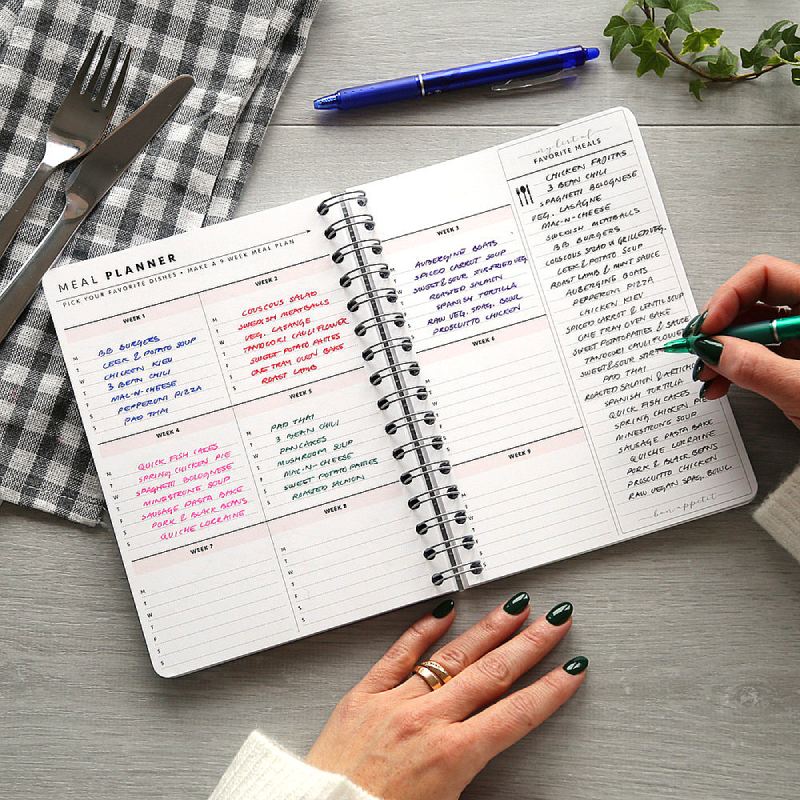 MEAL PLANNER
PICK YOUR FAVORITE DISHES • MAKE A 9 WEEK MEAL PLAN
WEEK 1
M
T BB BURGERS
W LEEK & POTATO SOUP
T CHICKEN KIEV
F 3 BEAN CHILI
S MAC-N-CHEESE
S PEPPERONI PIZZA
PAD THAI
WEEK 2
M COUSCOUS SALAD
T SWEDISH MEATBALLS
W VEG. LASANGE
T TANDOORI CAULIFLOWER
F SWEET POTATO PATTIES
S ONE TRAY OVEN BAKE
S ROAST LAMB
WEEK 3
AUBERGINE BOATS
SPICED CARROT SOUP
SWEET & SOUR STIRFRIED VEG.
ROASTED SALMON
SPANISH TORTILLA
RAW VEG. SPAG. BOWL
PROSCIUTTO CHICKEN
WEEK 4
M QUICK FISH CAKES
T SPRING CHICKEN PIE
W SPAGHETTI BOLOGNESE
T MINESTRONE SOUP
F SAUSAGE PASTA BAKE
S PORK & BLACK BEANS
S QUICHE LORRAINE
WEEK 5
M PAD THAI
T 3 BEAN CHILI
W PANCAKES
T MUSHROOM SOUP
F MAC-N-CHEESE
S SWEET POTATO PATTIES
S ROASTED SALMON
WEEK 6
M
T
W
T
F
S
S
WEEK 7
M
T
W
T
F
S
S
WEEK 8
M
T
W
T
F
S
S
WEEK 9
my list of
FAVORITE MEALS
CHICKEN FAJITAS
3 BEAN CHILI
SPAGHETTI BOLOGNESE
VEG. LASAGNE
MAC-N-CHEESE
SWEDISH MEATBALLS
BB BURGERS
COUSCOUS SALAD W GRILLED VEG.
LEEK & POTATO SOUP
ROAST LAMB & MINT SAUCE
AUBERGINE BOATS
PEPPERONI PIZZA
CHICKEN KIEV
SPICED CARROT & LENTIL SOUP
ONE TRAY OVEN BAKE
SWEET POTATO PATTIES & SAUCE
TANDOORI CAULIFLOWER
SWEET & SOUR
PAD THAI
ROASTED SALMON &
SPANISH TORTILLA
QUICK FISH CAKES
SPRING CHICKEN PIE
MINESTRONE SOUP
SAUSAGE PASTA BAKE
QUICHE LORRAINE
PORK & BLACK BEANS
PROSCIUTTO CHICKEN
RAW VEGAN SPAG. BOWL.
bon appetit